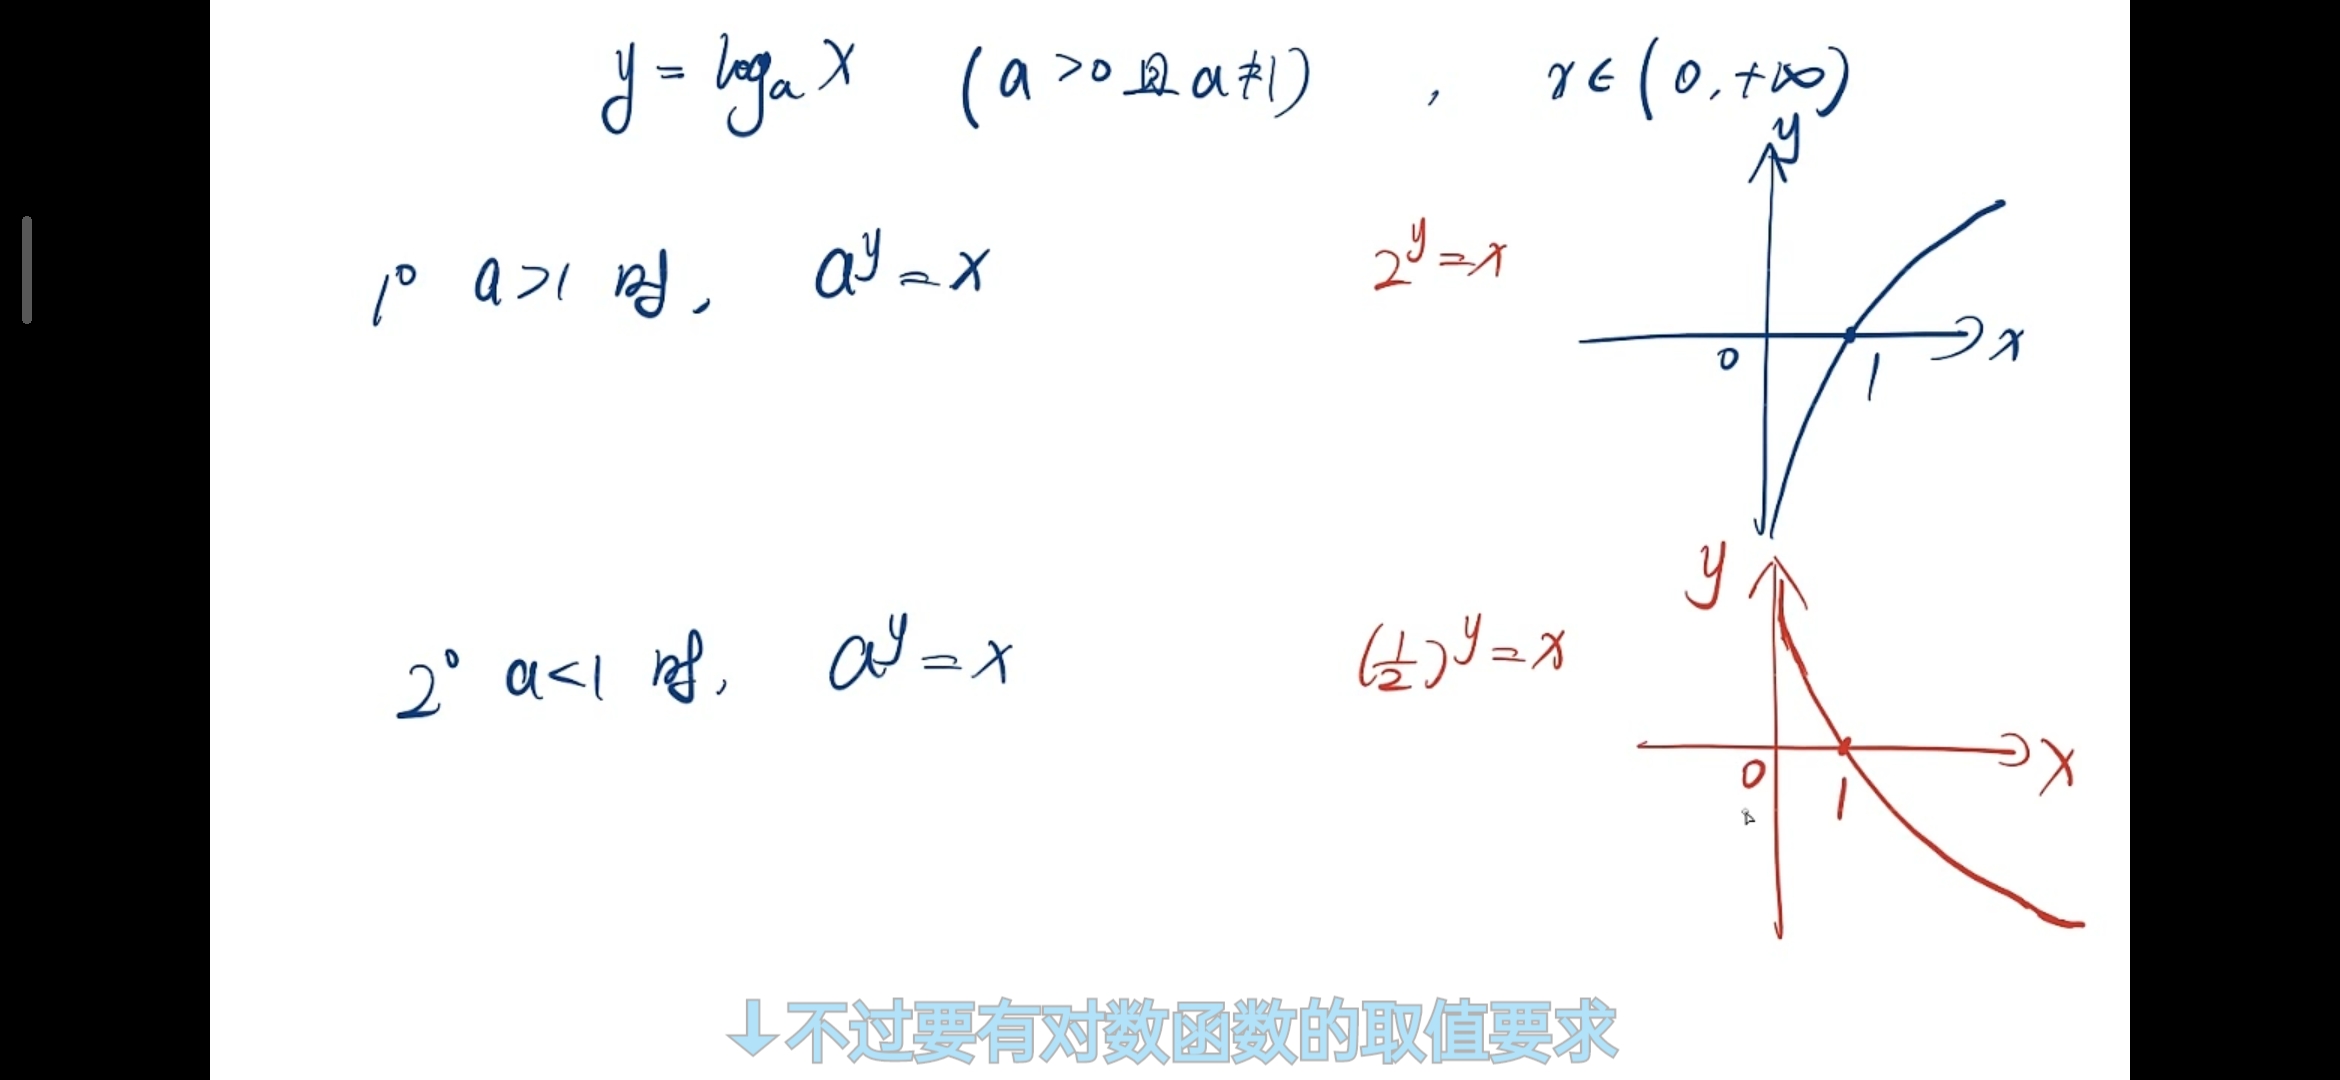 y = logₐ x (a > 0 且 a ≠ 1) , x ∈ (0, +∞)
y
1° a > 1 时, a^y = x 2^y = x
0 1 x
y
2° a < 1 时, a^y = x (1/2)^y = x
0 1 x
↓不过要有对数函数的取值要求